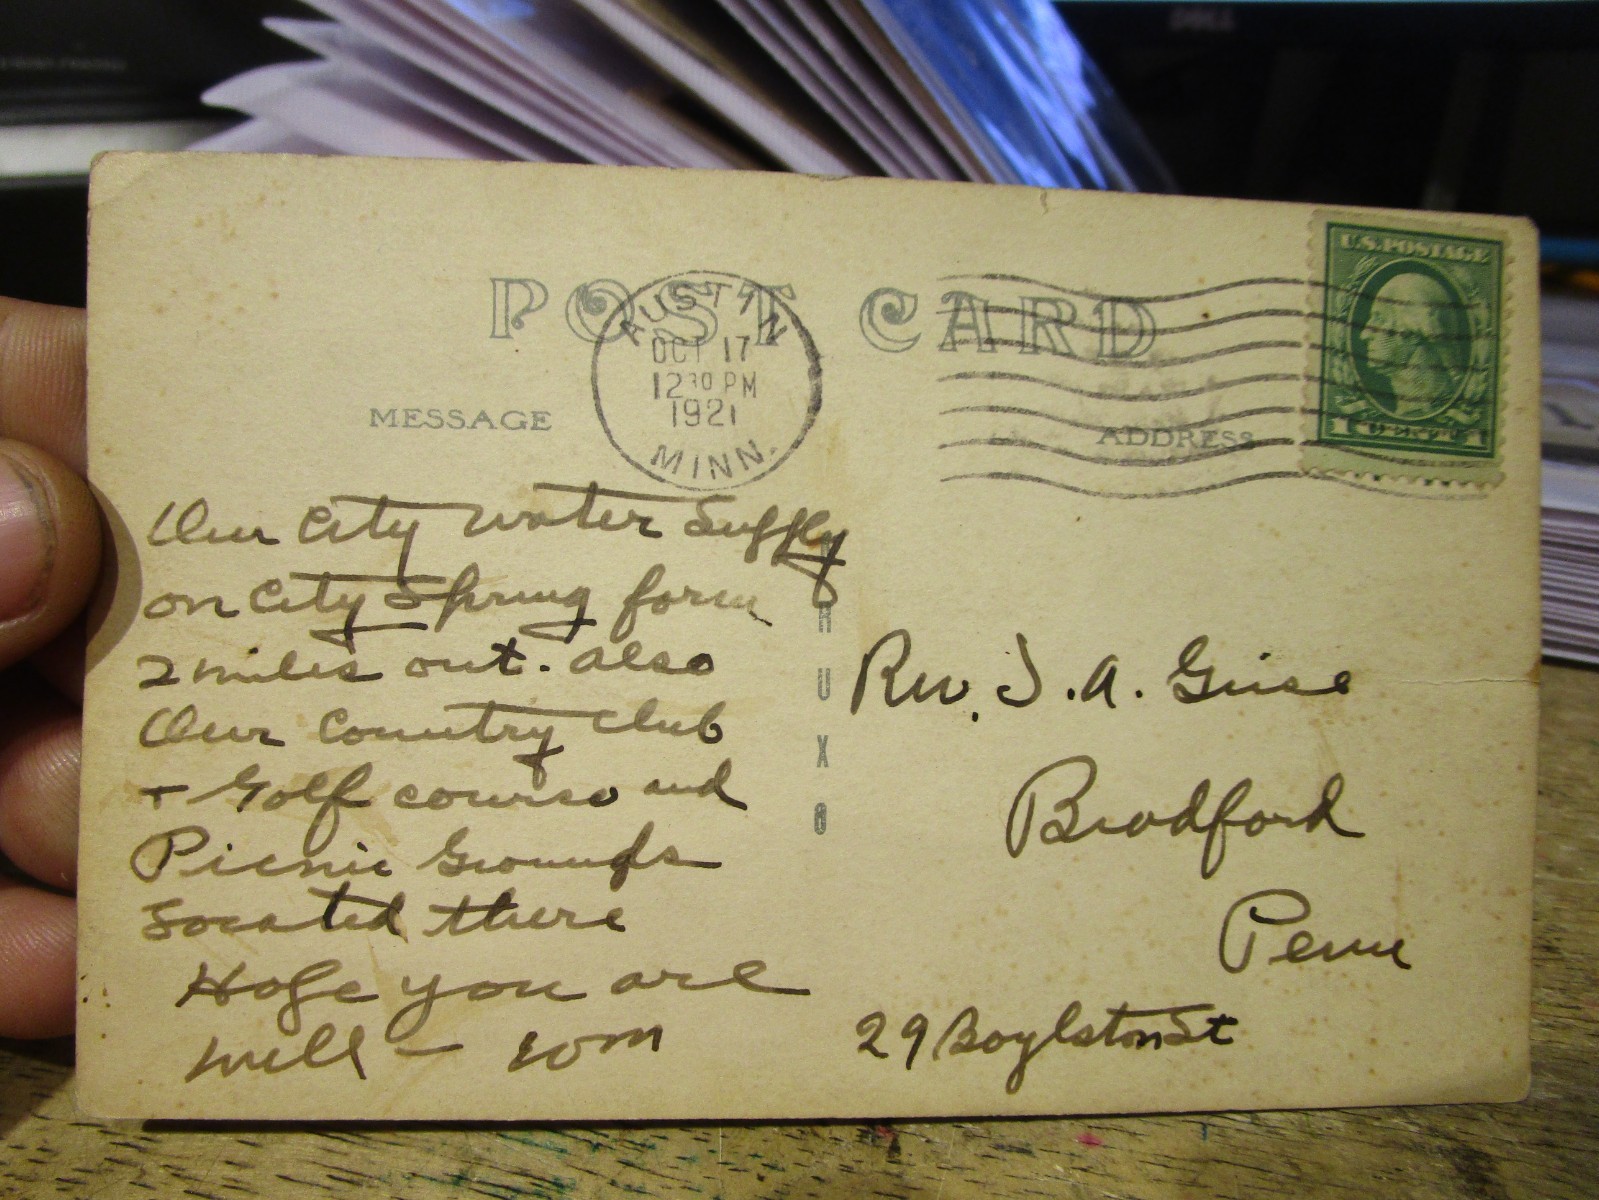 DELL
POST CARD
U.S. POSTAGE
AUSTIN
OCT 17
12 30 PM
1921
MINN.
MESSAGE
ADDRESS
Our City Water Supply
on City Spring farm
2 miles out. also
Our Country Club
+ Golf course and
Picnic Grounds
Located there
Hope you are
well — Wm
R
U
X
O
Rev. J. A. Guise
Bradford
Penn
29 Boylston St